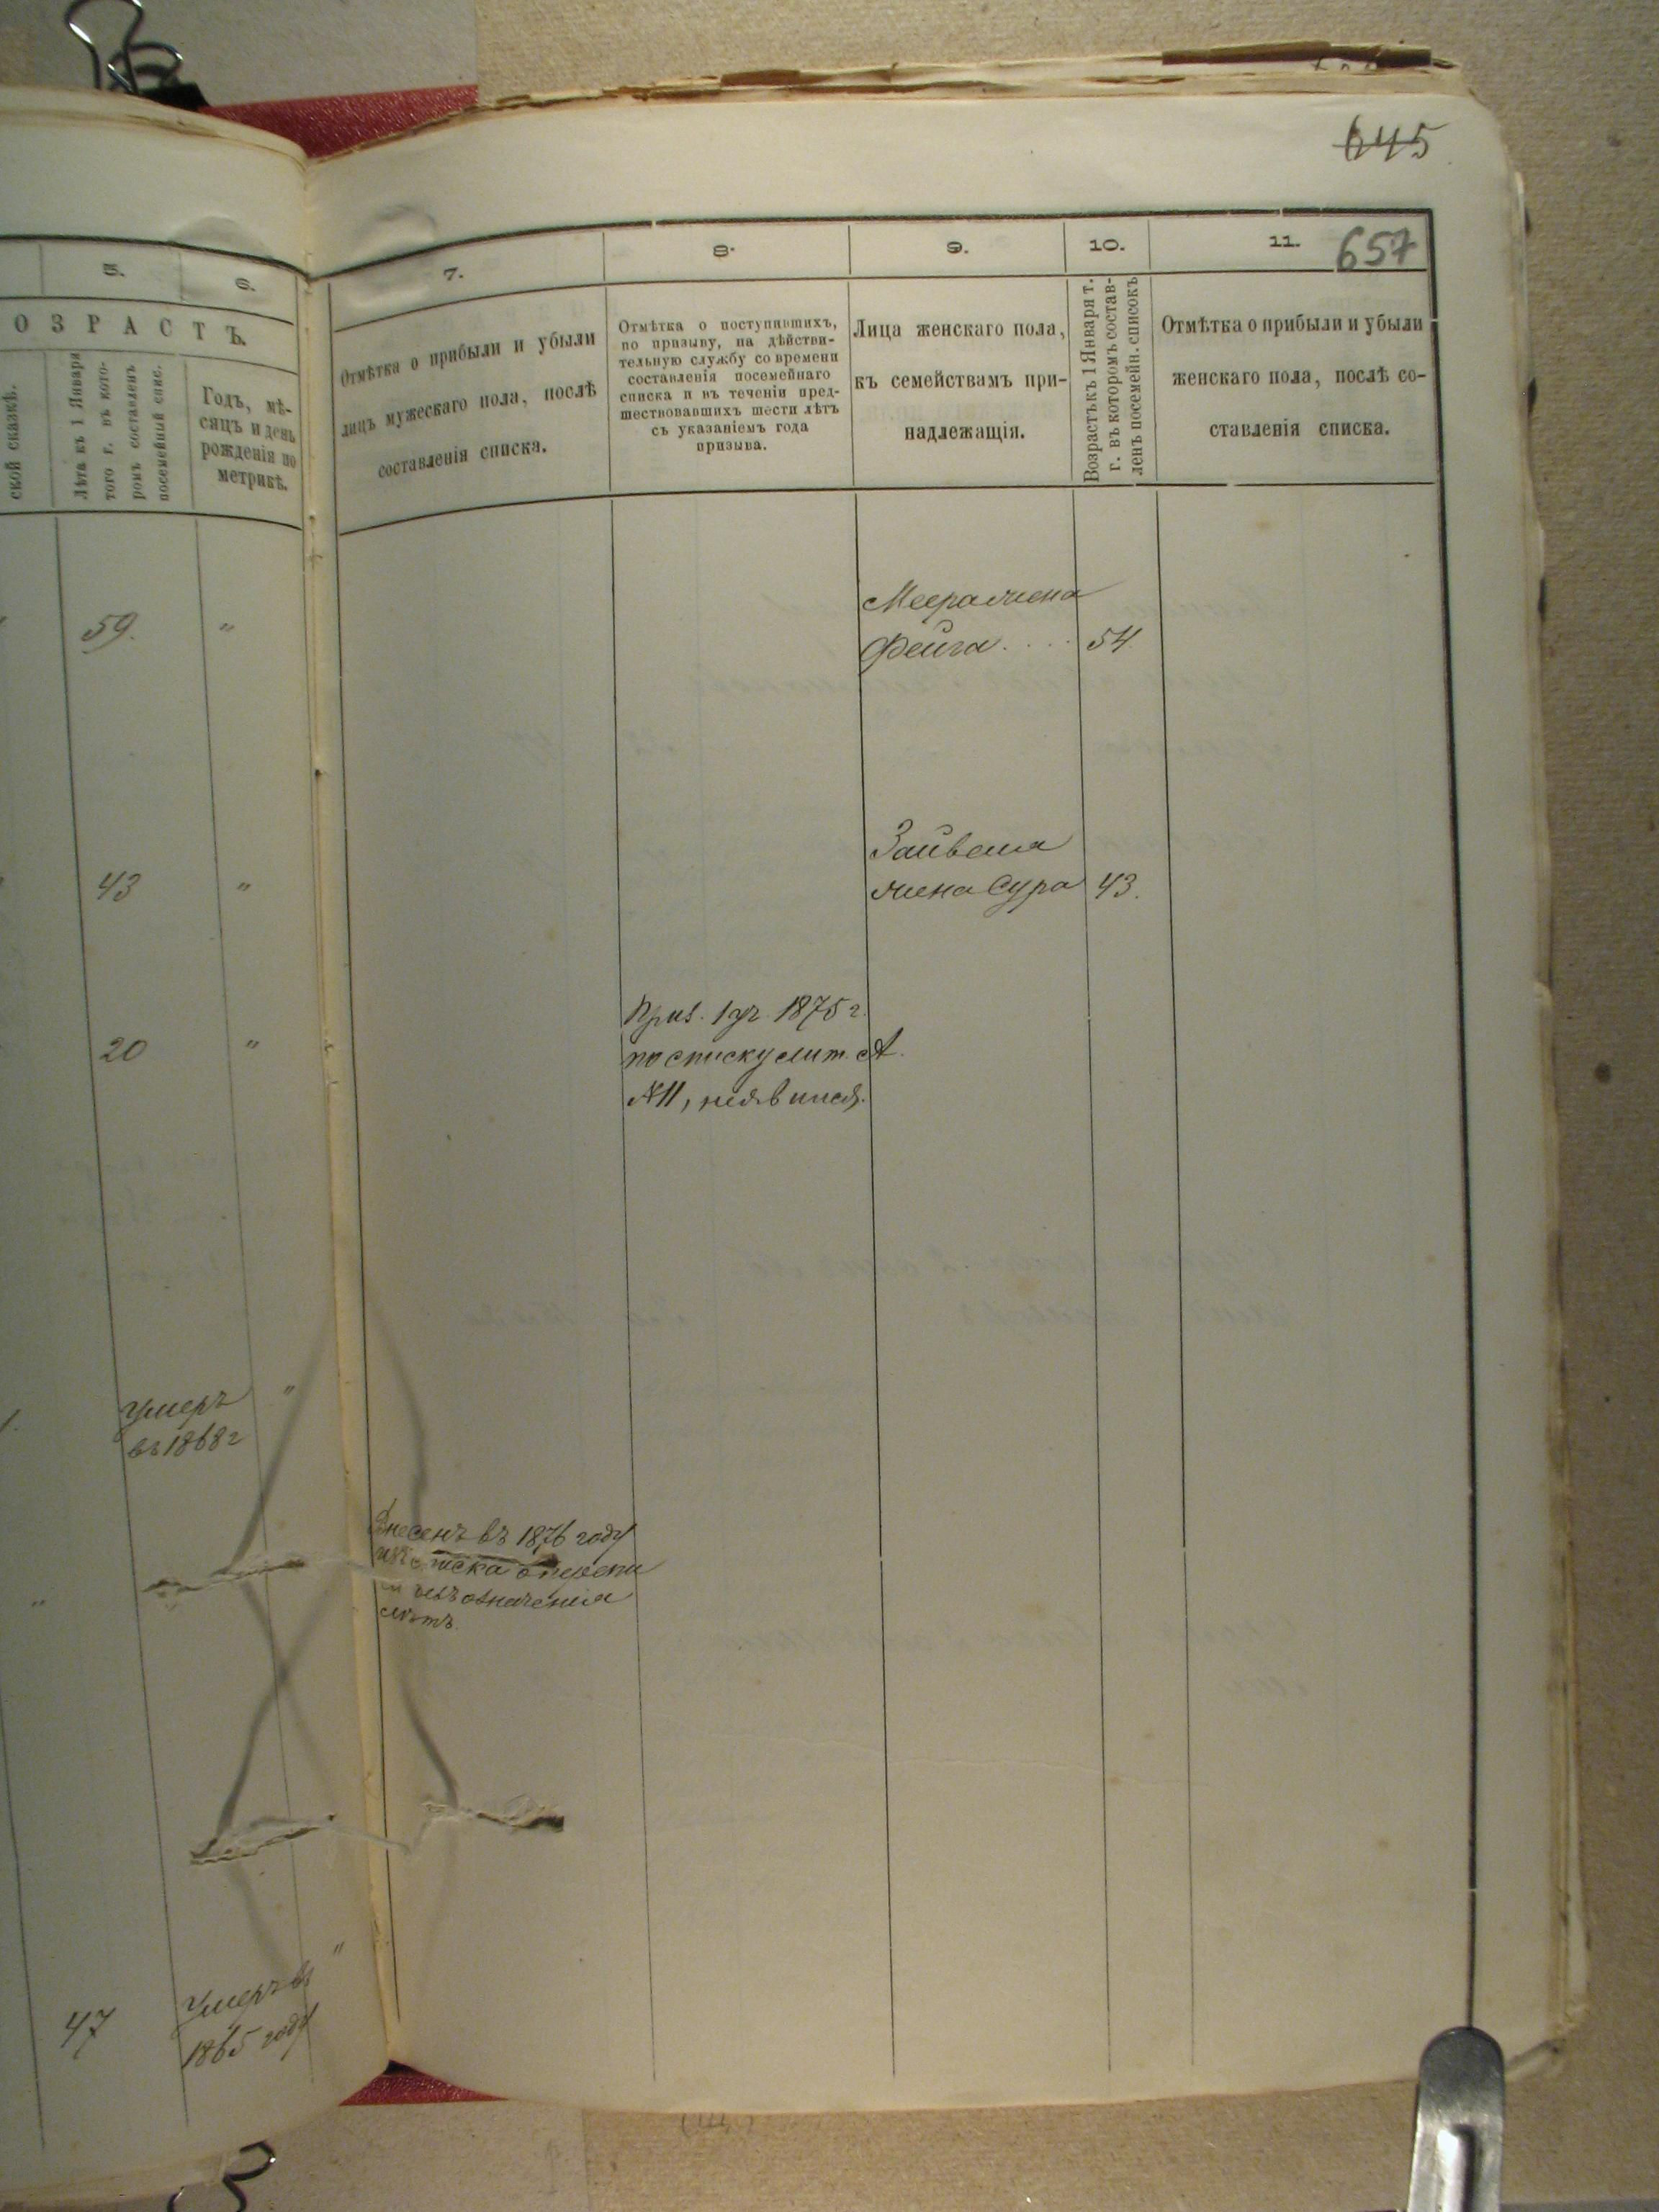 645
657
5.
6.
ОЗРАСТЪ.
ской сказкѣ.
Лѣта къ 1 Января
того г. въ кото-
ромъ составленъ
посемейный спис.
Годъ, мѣ-
сяцъ и день
рожденія по
метрикѣ.
59. "
43 "
20 "
1.
Умеръ "
въ 1868 г
"
47
Умеръ въ "
1865 году
7.
8.
9.
10.
11.
Отмѣтка о прибыли и убыли
лицъ мужескаго пола, послѣ
составленія списка.
Отмѣтка о поступившихъ,
по призыву, на дѣйстви-
тельную службу со времени
составленія посемейнаго
списка и въ теченіи пред-
шествовавшихъ шести лѣтъ
съ указаніемъ года
призыва.
Лица женскаго пола,
къ семействамъ при-
надлежащія.
Возрастъ къ 1 Января т.
г. въ которомъ состав-
ленъ посемейн. списокъ
Отмѣтка о прибыли и убыли
женскаго пола, послѣ со-
ставленія списка.
Меера жена
Фейга.... 54.
Зайвеля
жена Сура 43.
Приз. 1 уч. 1875 г.
по списку лит. А.
№11, неявился.
Внесенъ въ 1876 году
лѣтъ.